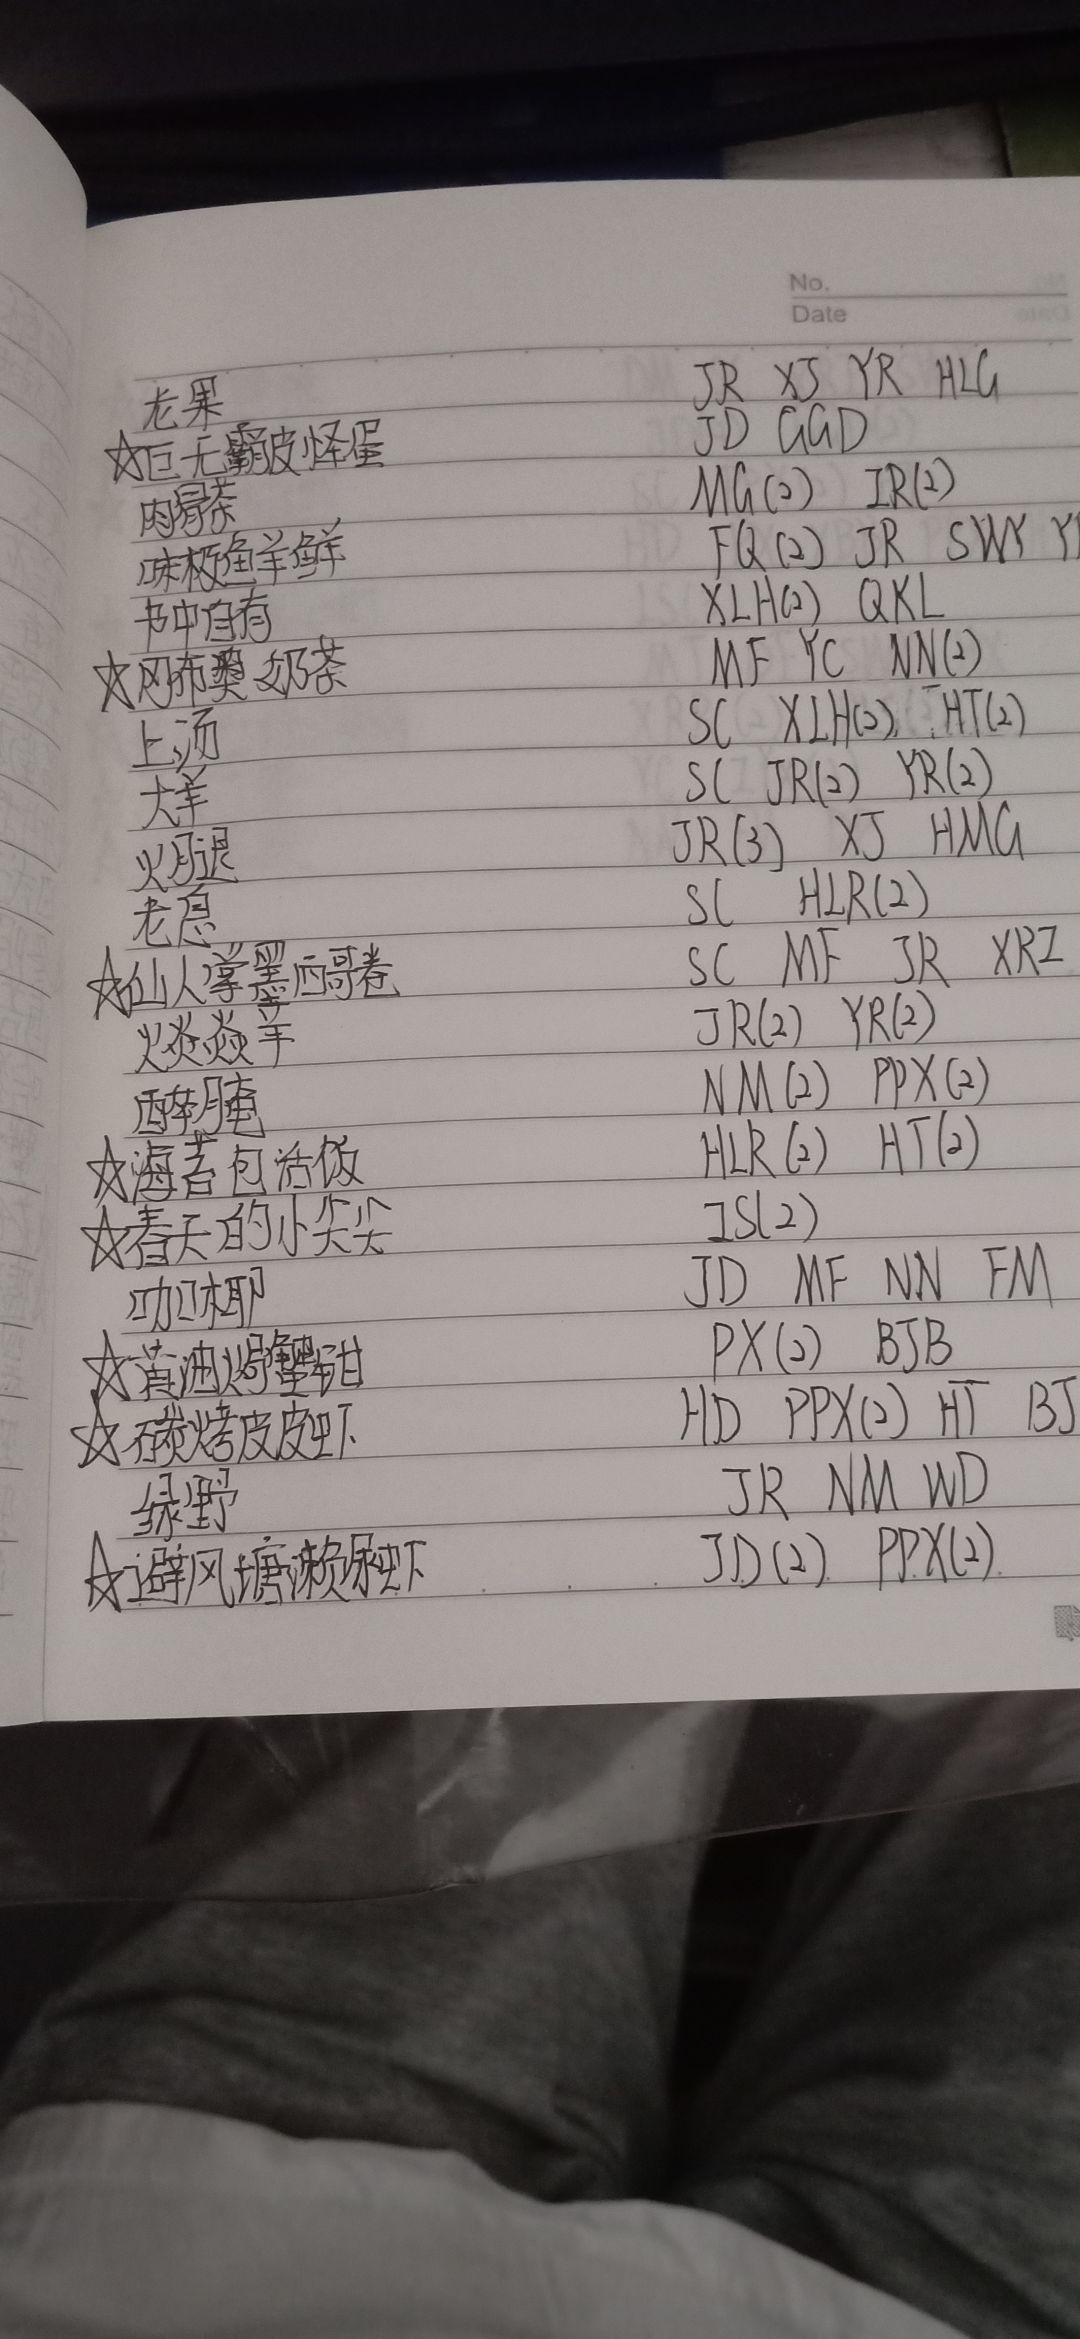 No.
Date
老果 JR XJ YR HLG
☆巨无霸皮怪蛋 JD GGD
肉骨茶 MG(2) IR(2)
味极鱼羊鲜 FQ(2) JR SWY
书中自有 XLH(2) QKL
☆冈布奥奶茶 MF YC NN(2)
上汤 SC XLH(2) HT(2)
大羊 SC JR(2) YR(2)
火腿 JR(3) XJ HMG
老息 SC HLR(2)
☆仙人掌墨西哥卷 SC MF JR XRZ
火炎焱羊 JR(2) YR(2)
醉腌 NM(2) PPX(2)
☆海苔包活饭 HLR(2) HT(2)
☆春天的小尖尖 ZS(2)
咖椰 JD MF NN FM
☆黄油焗蟹钳 PX(2) BJB
☆碳烤皮皮虾 HD PPX(2) HT BJ
绿野 JR NM WD
☆避风塘濑尿虾 JD(2) PPX(2)